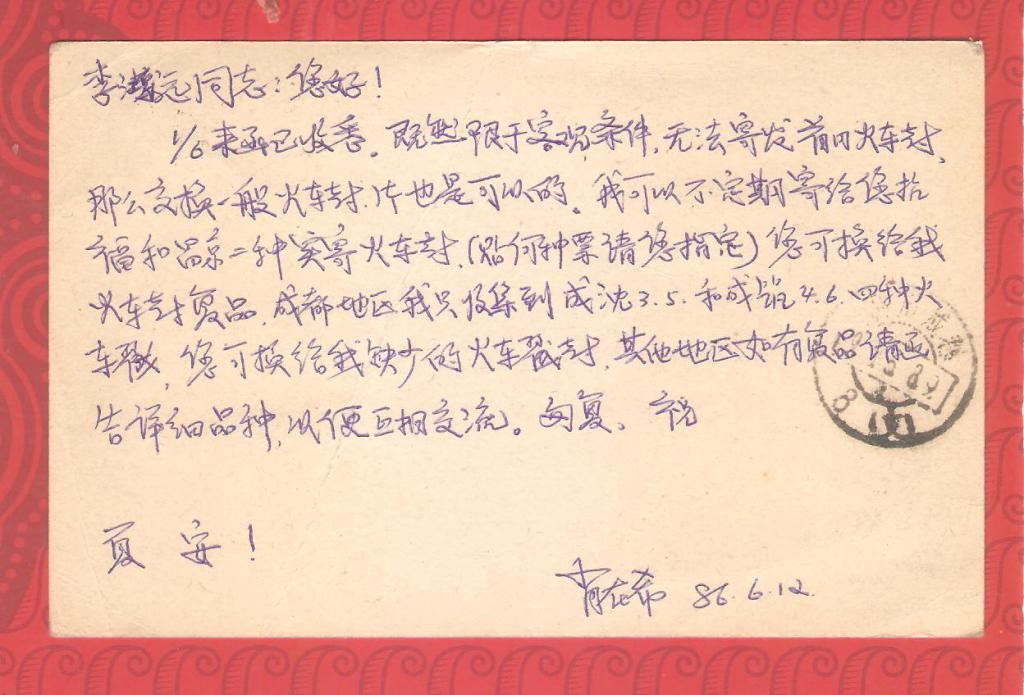 李鸿远同志:您好!
1/6来函已收悉。既然限于客观条件,无法寄发首日火车封,
那么交换一般火车封.片也是可以的。我可以不定期寄给您
福和昌京二种实寄火车封.(贴何种票请您指定)您可换给我
火车封复品.成都地区我只收集到成沈3.5.和成昆4.6.四种火
车戳,您可换给我缺少的火车戳封,其他地区如有复品请函
告详细品种,以便互相交流。匆复、祝
夏安!
肖在希 86.6.12.
成都
8